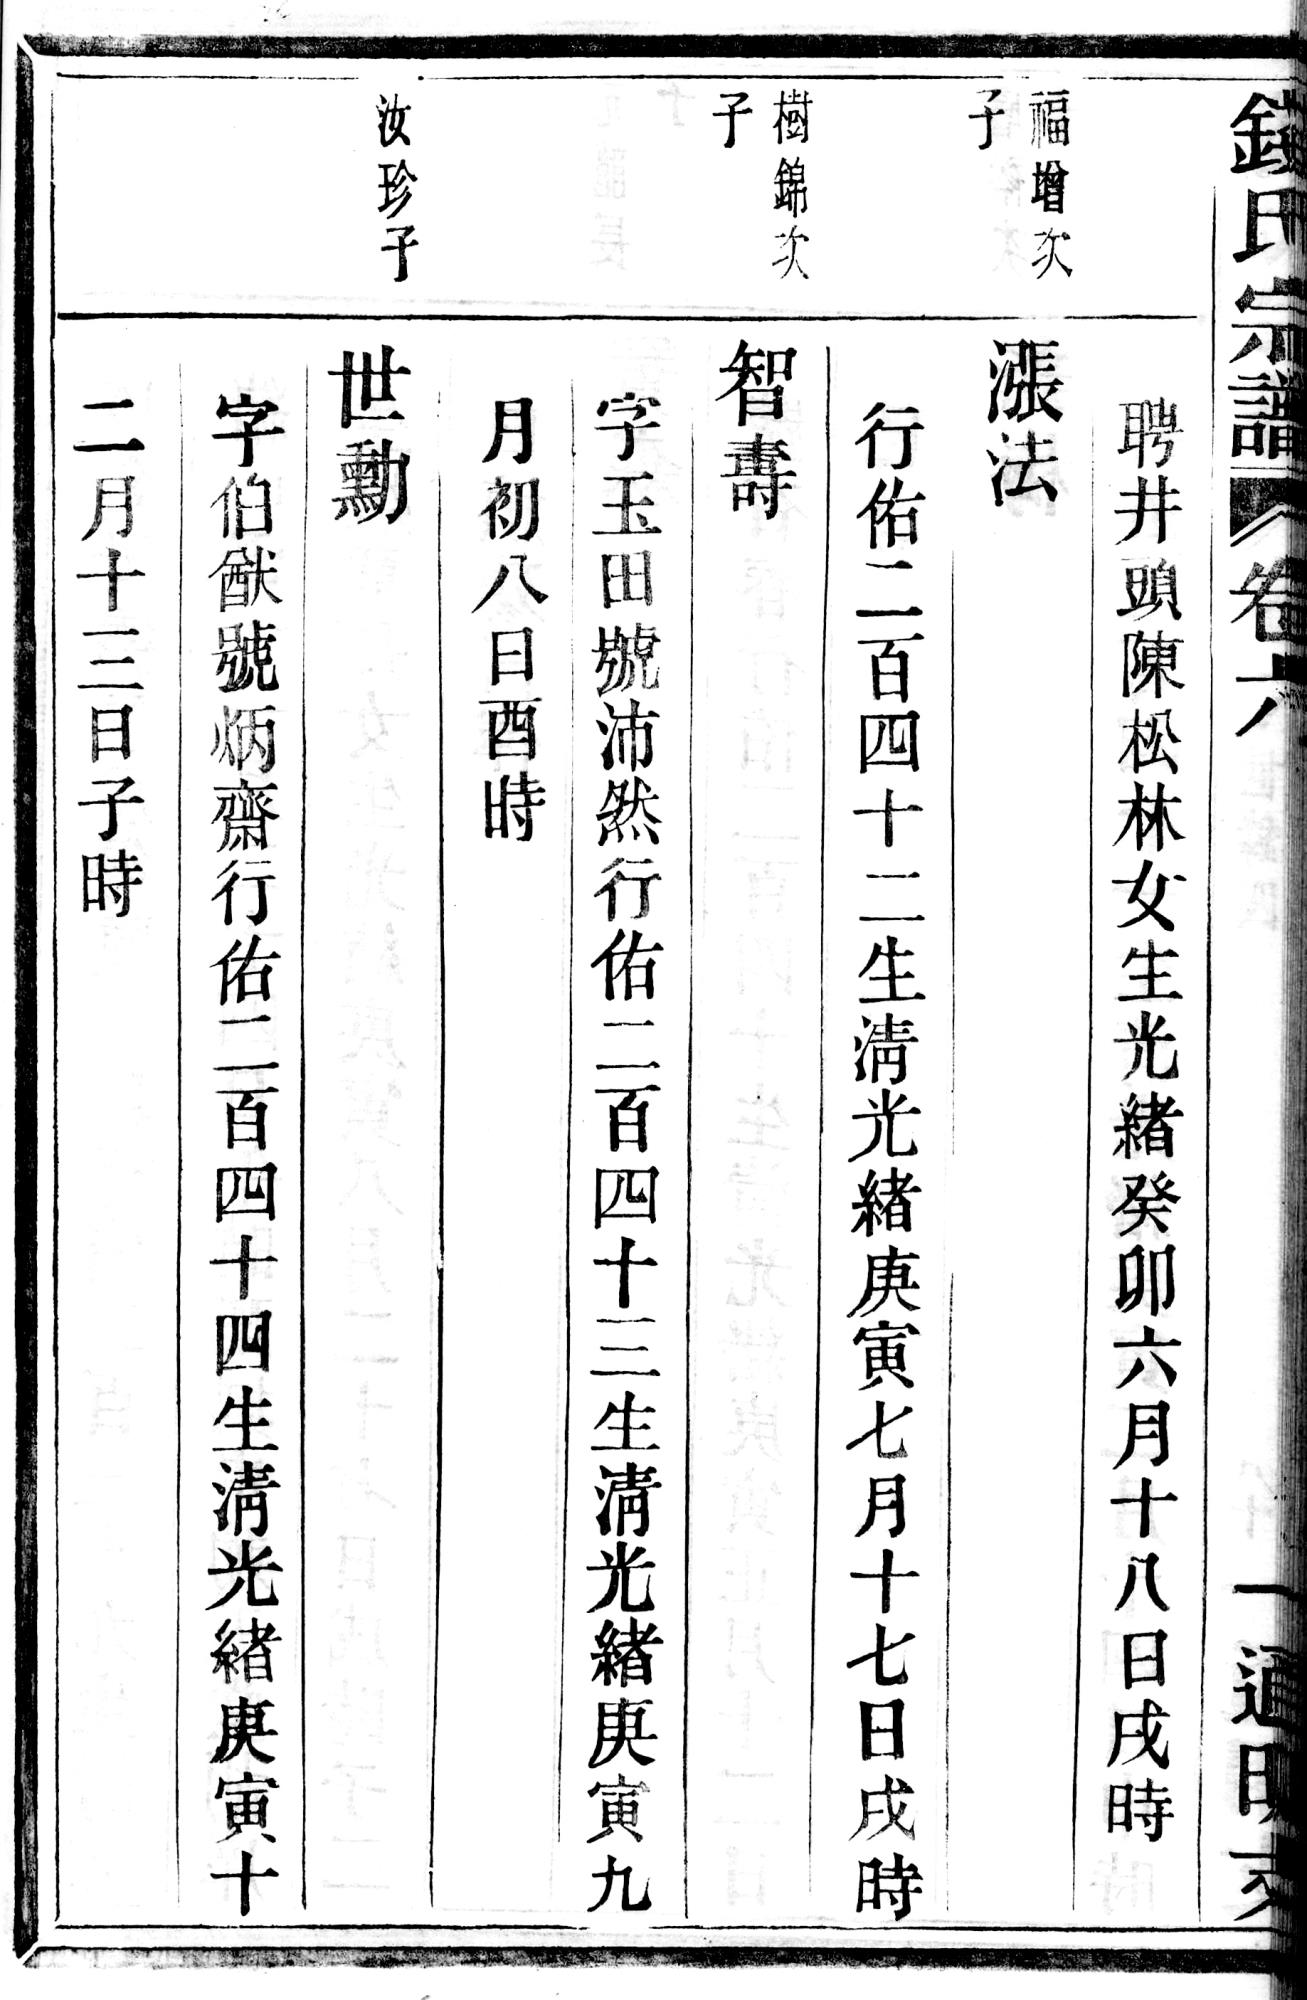 錢氏宗譜 卷六 一 通明支
聘井頭陳松林女生光緒癸卯六月十八日戌時
福增次
子
漲法
行佑二百四十二生淸光緒庚寅七月十七日戌時
樹錦次
子
智壽
字玉田號沛然行佑二百四十三生淸光緒庚寅九
月初八日酉時
汝珍子
世勳
字伯猷號炳齋行佑二百四十四生淸光緒庚寅十
二月十三日子時